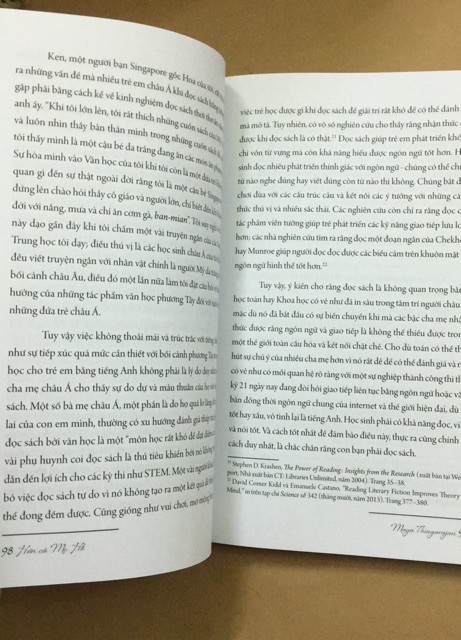 Ken, một người bạn Singapore gốc Hoa của tôi,
ra những vấn đề mà nhiều trẻ em châu Á khi đọc sách
gặp phải bằng cách kể về kinh nghiệm đọc sách thời thơ
anh ấy. "Khi tôi lớn lên, tôi rất thích những cuốn sách của
và luôn nhìn thấy bản thân mình trong những cuốn sách
tôi thấy mình là một cậu bé da trắng đang ăn các món ăn
Sự hòa mình vào Văn học của tôi khi tôi còn là một đứa trẻ
quan gì đến sự thật ngoài đời rằng tôi là một cậu bé Singapore
đứng lên chào hỏi thầy cô giáo và người lớn, chỉ biết đến
đới với nắng, mưa và chỉ ăn cơm gà, ban-mian". Tôi suy nghĩ
này dạo gần đây khi tôi chấm một vài truyện ngắn của
Trung học tôi dạy; điều thú vị là các học sinh châu Á của
đều viết truyện ngắn với nhân vật chính là người Mỹ da trắng
bối cảnh châu Âu, điều đó một lần nữa làm tôi đặt câu hỏi về
hưởng của những tác phẩm văn học phương Tây đối với
những đứa trẻ châu Á.
Tuy vậy việc không thoải mái và trúc trắc với
như sự tiếp xúc quá mức cần thiết với bối cảnh phương Tây
học cho trẻ em bằng tiếng Anh không phải là lý do duy nhất
cha mẹ châu Á cho thấy sự do dự và mâu thuẫn của họ với
sách. Một số bà mẹ châu Á, một phần là do họ quá lo lắng
lai của con em mình, thường có xu hướng đánh giá thấp
đọc sách bởi văn học là một "môn học rất khó để đạt điểm
vài phụ huynh coi đọc sách là thú tiêu khiển bởi nó không
dẫn đến lợi ích cho các kỳ thi như STEM. Một vài người
bỏ việc đọc sách tự do vì nó không tạo ra một kết quả
thể đong đếm được. Cũng giống như vui chơi, mơ mộng
98 Hổ
việc trẻ học được gì khi đọc sách để giải trí rất khó để có thể đánh
mà mô tả. Tuy nhiên, có vô số nghiên cứu cho thấy rằng nhận thức
được khi đọc sách là có thật.²¹ Đọc sách giúp trẻ em phát triển khô
chỉ vốn từ vựng mà còn khả năng hiểu được ngôn ngữ tốt hơn. H
sinh đọc nhiều phát triển thính giác với ngôn ngữ - chúng có thể ch
từ nào nghe đúng hay viết đúng còn từ nào thì không. Chúng bắt đ
chơi đùa với các cấu trúc câu và kết nối các ý tưởng với những cá
thức thú vị và nhiều sắc thái. Các nghiên cứu còn chỉ ra rằng đọc c
tác phẩm viễn tưởng giúp trẻ phát triển các kỹ năng giao tiếp lưu lo
hơn; các nhà nghiên cứu tìm ra rằng đọc một đoạn ngắn của Chekho
hay Munroe giúp người đọc đọc được các biểu cảm trên khuôn mặt
ngôn ngữ hình thể tốt hơn.²²
Tuy vậy, ý kiến cho rằng đọc sách là không quan trọng bằn
học toán hay Khoa học có vẻ như đã in sâu trong tâm trí người châu
mặc dù nó đã bắt đầu có sự biến chuyển khi mà các bậc cha mẹ nhậ
thức được rằng ngôn ngữ và giao tiếp là không thể thiếu được tron
một thế giới toàn cầu hóa và kết nối chặt chẽ. Cho dù toán có thể th
hút sự chú ý của nhiều cha mẹ hơn vì nó rất dễ để có thể đánh giá và n
có vẻ như có mối quan hệ rõ ràng với một sự nghiệp thành công thì th
kỷ 21 ngày nay đang đòi hỏi giao tiếp liên tục bằng ngôn ngữ hoặc vă
bản đồng thời ngôn ngữ chung của internet và thế giới hiện đại, dù
tốt hay xấu, vô tình lại là tiếng Anh. Học sinh phải có khả năng đọc, vi
và nói tốt. Và cách tốt nhất để đảm bảo điều này, thực ra cũng chính
cách duy nhất, là chắc chắn rằng con bạn phải đọc sách.
²¹ Stephen D. Krashen, The Power of Reading: Insights from the Research (xuất bản tại We
port, Nhà xuất bản CT: Libraries Unlimited, năm 2004). Trang 35–38.
²² David Comer Kidd và Emanuele Castano, "Reading Literary Fiction Improves Theory
Mind," in trên tạp chí Science số 342 (tháng mười, năm 2013). Trang 377–380.
Maya Thiagarajan